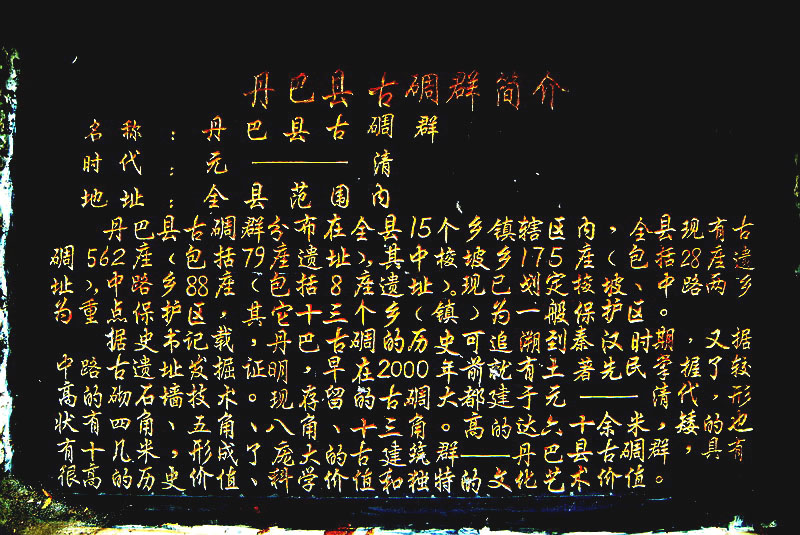 丹巴县古碉群简介
名称：丹巴县古碉群
时代：元——清
地址：全县范围内
丹巴县古碉群分布在全县15个乡镇辖区内，全县现有古
碉562座（包括79座遗址），其中梭坡乡175座（包括28座遗
址），中路乡88座（包括8座遗址）。现已划定梭坡、中路两乡
为重点保护区，其它十三个乡（镇）为一般保护区。
据史书记载，丹巴古碉的历史可追溯到秦汉时期，又据
中路古遗址发掘，证明早在2000年前就有土著先民掌握了较
高的砌石墙技术。现存的古碉大都建于元——清代，形
状有四角、五角、八角、十三角。高的达六十余米，矮的也
有十几米，形成了庞大的古建筑群——丹巴县古碉群，具有
很高的历史价值、科学价值和独特的文化艺术价值。